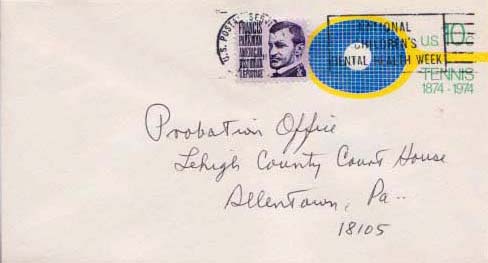 U.S. POSTAL SERVICE
FRANCIS
PARKMAN
AMERICAN
HISTORIAN
NATIONAL
CHILDREN'S
DENTAL HEALTH WEEK
U.S. 10c
TENNIS
1874-1974
Probation Office
Lehigh County Court House
Allentown, Pa--
18105